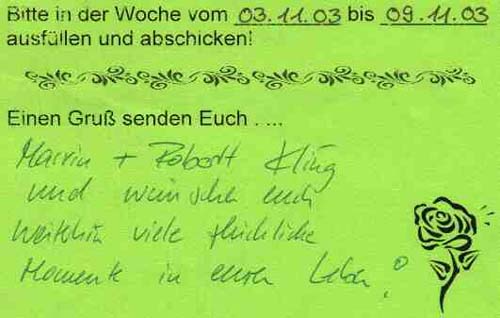 Bitte in der Woche vom 03.11.03 bis 09.11.03
ausfüllen und abschicken!
Einen Gruß senden Euch . ...
Marvin + Robert Kling
und wünschen euch
weiterhin viele glückliche
Momente in eurem Leben!